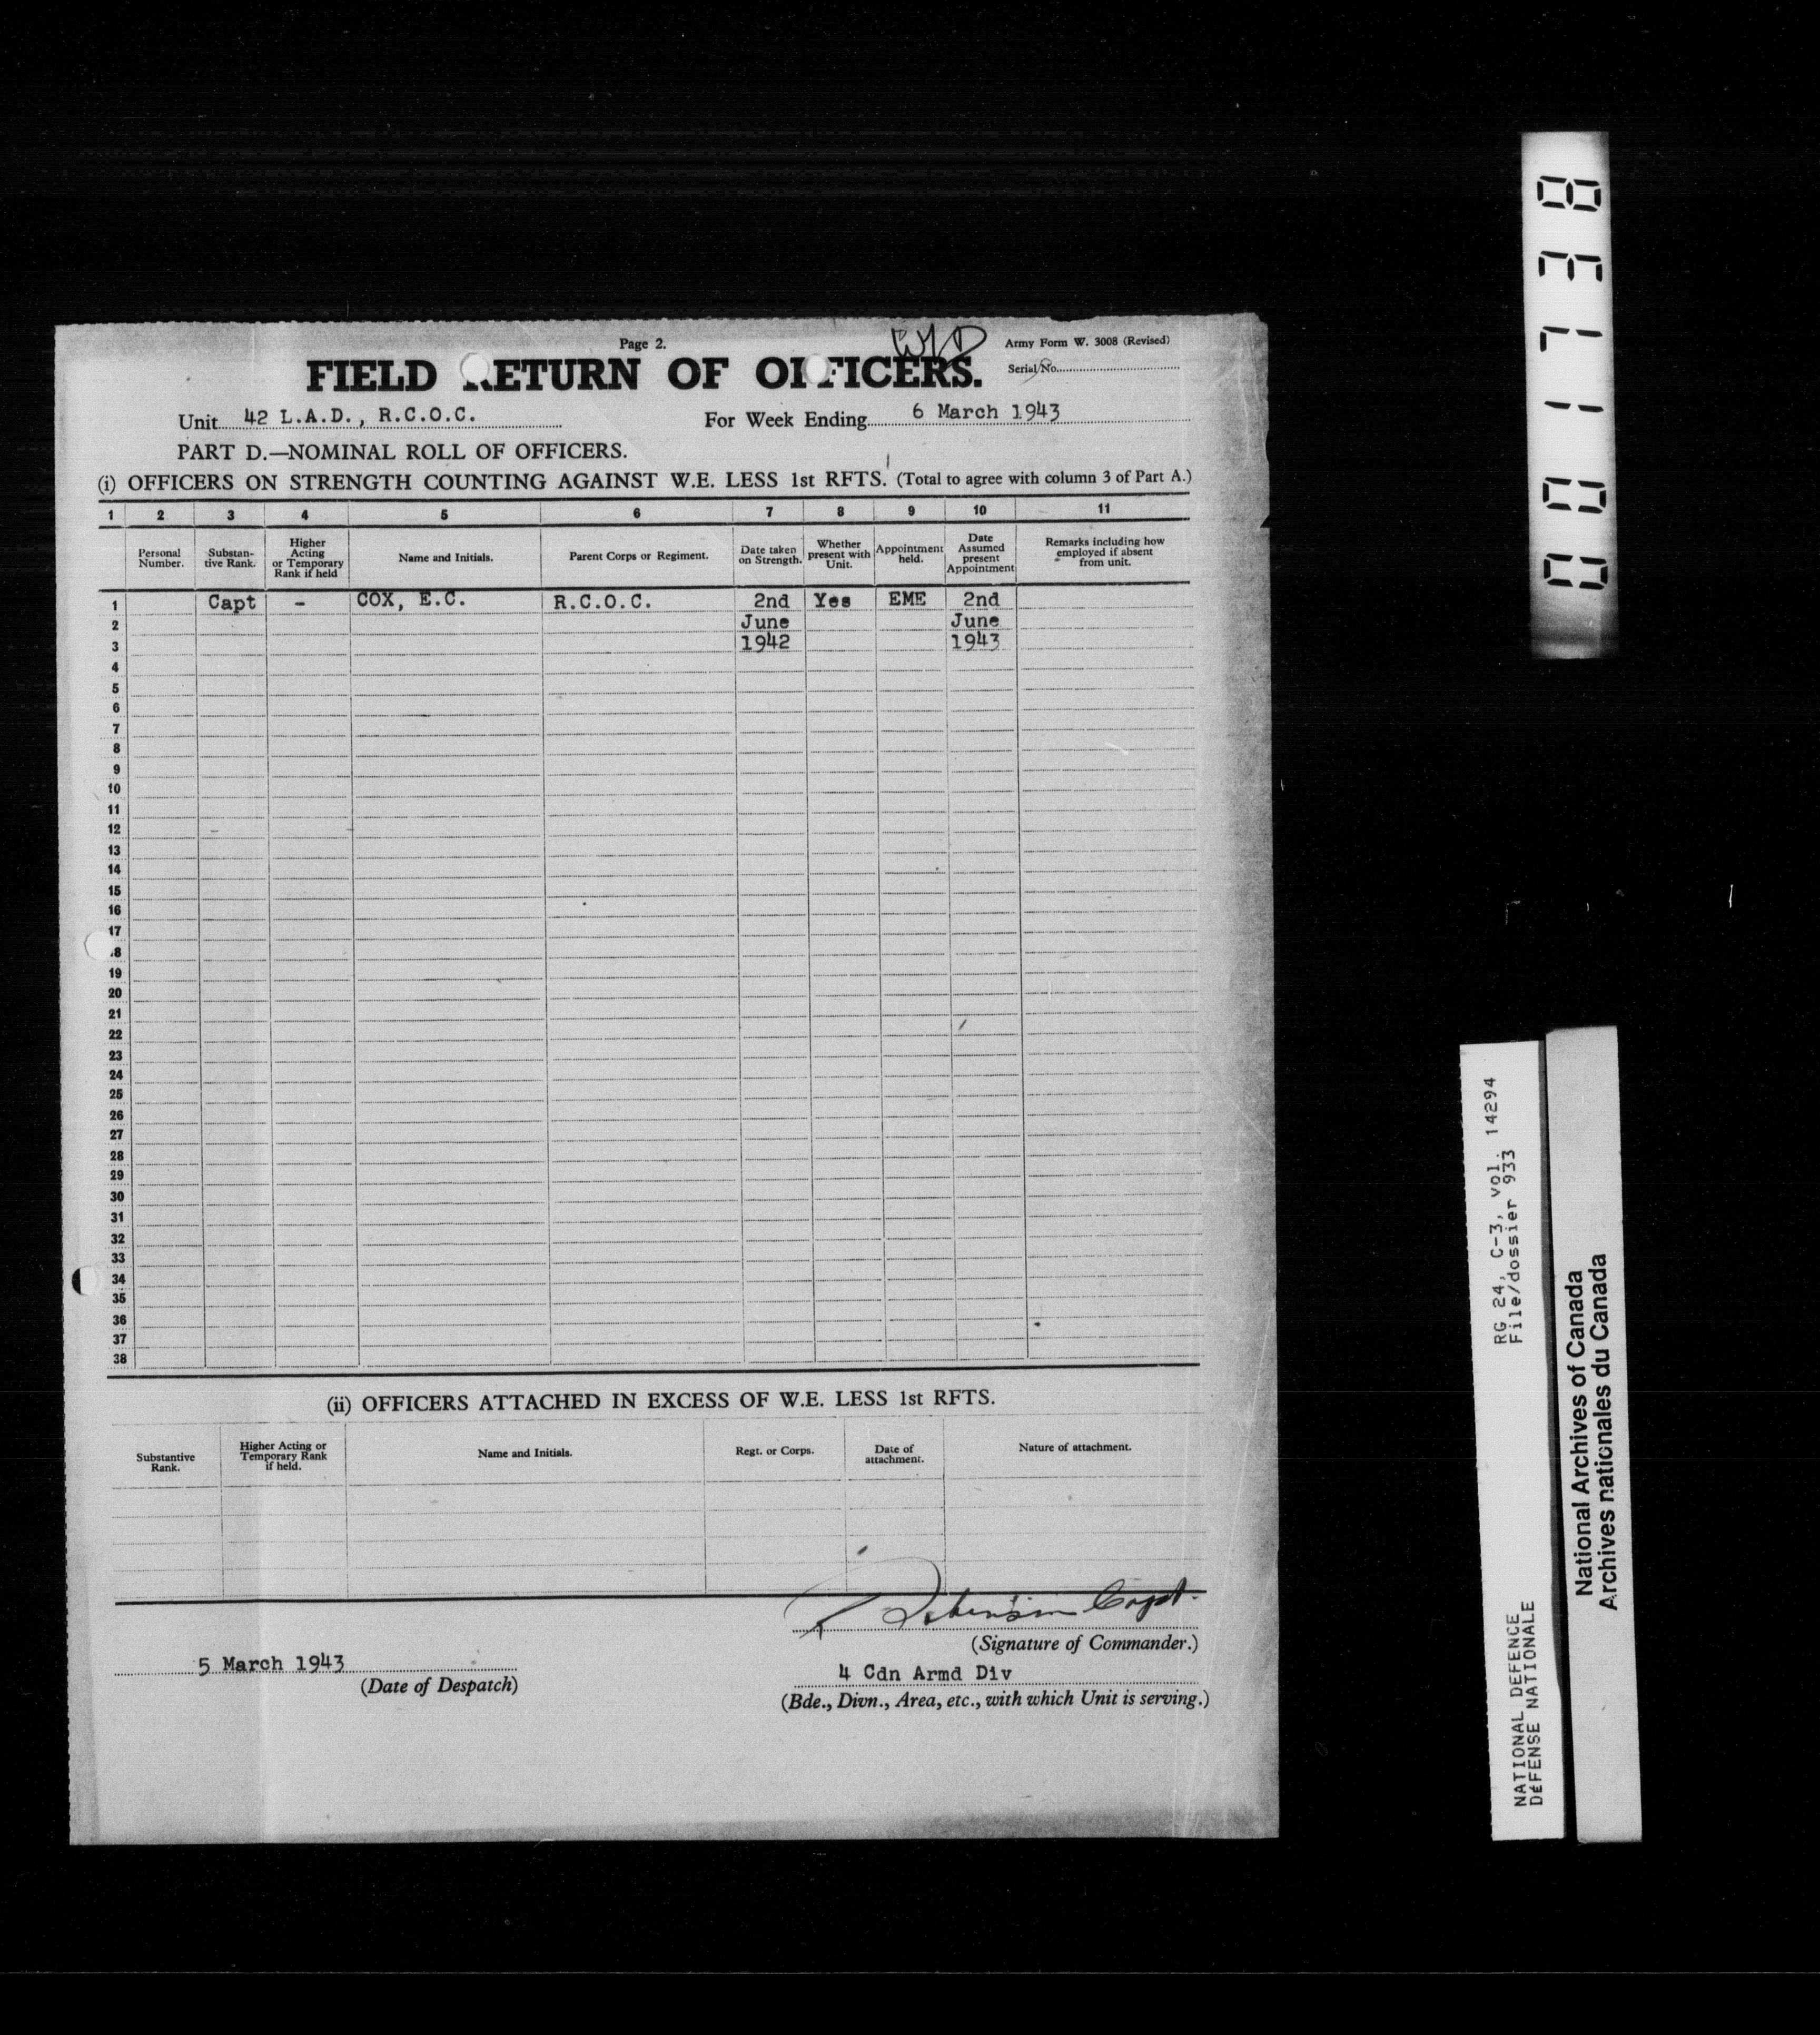 Page 2.
W/D
Army Form W. 3008 (Revised)
FIELD RETURN OF OFFICERS.
Serial No.
Unit 42 L.A.D., R.C.O.C. For Week Ending 6 March 1943
PART D.—NOMINAL ROLL OF OFFICERS.
(i) OFFICERS ON STRENGTH COUNTING AGAINST W.E. LESS 1st RFTS. (Total to agree with column 3 of Part A.)
1 2 3 4 5 6 7 8 9 10 11
Personal Number. Substan-tive Rank. Higher Acting or Temporary Rank if held Name and Initials. Parent Corps or Regiment. Date taken on Strength. Whether present with Unit. Appointment held. Date Assumed present Appointment Remarks including how employed if absent from unit.
1 Capt - COX, E.C. R.C.O.C. 2nd Yes EME 2nd
2 June June
3 1942 1943
4
5
6
7
8
9
10
11
12
13
14
15
16
17
18
19
20
21
22
23
24
25
26
27
28
29
30
31
32
33
34
35
36
37
38
(ii) OFFICERS ATTACHED IN EXCESS OF W.E. LESS 1st RFTS.
Substantive Rank. Higher Acting or Temporary Rank if held. Name and Initials. Regt. or Corps. Date of attachment. Nature of attachment.
Capt.
(Signature of Commander.)
5 March 1943
(Date of Despatch)
4 Cdn Armd Div
(Bde., Divn., Area, etc., with which Unit is serving.)
001738
RG 24, C-3, vol. 14294
File/dossier 933
NATIONAL DEFENCE
DéFENSE NATIONALE
National Archives of Canada
Archives nationales du Canada